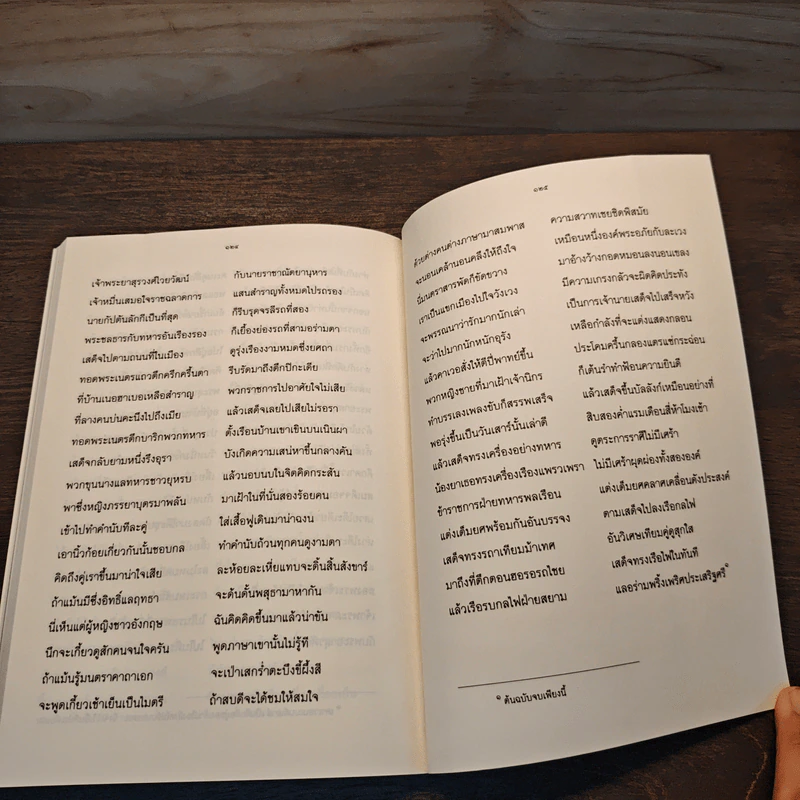 ๑๒๔
เจ้าพระยาสุรวงศ์ไวยวัฒน์ กับนายราชาณัตยานุหาร
เจ้าหมื่นเสมอใจราชฉลาดการ แสนสำราญทั้งหมดไปรถรอง
นายกัปตันลักก็เป็นที่สุด ก็รีบรุดจรลีรถที่สอง
พระชลธารกับทหารอันเรืองรอง ก็เยื้องย่องรถที่สามอร่ามตา
เสด็จไปตามถนนที่ในเมือง ดูรุ่งเรืองงามหมดซึ่งยศถา
ทอดพระเนตรแถวตึกครึกครื้นตา รีบรัดมาถึงตึกปิกะเดีย
ที่บ้านเนอฮาเบอเหลือสำราญ พวกราชการไปอาศัยใจไม่เสีย
ที่ลางคนบ่นคะนึงไปถึงเมีย แล้วเสด็จเลยไปเสียไม่รอรา
ทอดพระเนตรตึกบาริกพวกทหาร ตั้งเรือนบ้านเขาเขินบนเนินผา
เสด็จกลับยามหนึ่งรึงอุรา บังเกิดความเสน่หาขึ้นกลางคัน
พวกขุนนางแลทหารชาวยุหรบ แล้วนอบนบในจิตคิดกระสัน
พาซึ่งหญิงภรรยาบุตรมาพลัน มาเฝ้าในที่นั่นสองร้อยคน
เข้าไปทำคำนับทีละคู่ ใส่เสื้อฟูเดินมาน่าฉงน
เอานิ้วก้อยเกี่ยวกันนั้นชอบกล ทำคำนับถ้วนทุกคนดูงามตา
คิดถึงคู่เราขึ้นมาน่าใจเสีย ละห้อยละเหี่ยแทบจะดิ้นสิ้นสังขาร์
ถ้าแม้นมีซึ่งอิทธิ์แลฤทธา จะดั้นดั้นพสุธามาหากัน
นี่เห็นแต่ผู้หญิงชาวอังกฤษ ฉันคิดคิดขึ้นมาแล้วน่าขัน
นึกจะเกี้ยวดูสักคนจนใจครัน พูดภาษาเขานั้นไม่รู้ที
ถ้าแม้นรู้มนตราคาถาเอก จะเป่าเสกร่ำตะบึงขี้ผึ้งสี
จะพูดเกี้ยวเช้าเย็นเป็นไมตรี ถ้าสบดีจะได้ชมให้สมใจ
๑๒๕
ด้วยต่างคนต่างภาษามาสมพาส ความสวาทเชยชิดพิสมัย
จะนอนเคล้านอนคลึงให้ถึงใจ เหมือนหนึ่งองค์พระอภัยกับละเวง
นี่มนตราสารพัดก็ขัดขวาง มาอ้างว้างกอดหมอนลงนอนเขลง
เราเป็นแขกเมืองไปใจวังเวง มีความเกรงกลัวจะผิดคิดประทัง
จะพรรณนาว่ารักมากนักเล่า เป็นการเจ้านายเสด็จไปเสร็จหวัง
จะว่าไปมากนักหนักอุรัง เหลือกำลังที่จะแต่งแสดงกลอน
แล้วคาเวอสั่งให้ตีปี่พาทย์ขึ้น ประโคมครื้นกลองแตรแซ่กระฉ่อน
พวกหญิงชายที่มาเฝ้าเจ้านิกร ก็เต้นรำทำฟ้อนความยินดี
ทำบรรเลงเพลงขับก็สรรพเสร็จ แล้วเสด็จขึ้นบัลลังก์เหมือนอย่างที่
พอรุ่งขึ้นเป็นวันเสาร์นั้นเล่าตี สิบสองค่ำแรมเดือนสี่ห้าโมงเช้า
แล้วเสด็จทรงเครื่องอย่างทหาร ดูตระการราศีไม่มีเศร้า
น้องยาเธอทรงเครื่องเรืองแพรวเพรา ไม่มีเศร้าผุดผ่องทั้งสององค์
ข้าราชการฝ่ายทหารพลเรือน แต่งเต็มยศคลาศเคลื่อนดังประสงค์
แต่งเต็มยศพร้อมกันอันบรรจง ตามเสด็จไปลงเรือกลไฟ
เสด็จทรงรถาเทียมม้าเทศ อันวิเศษเทียมคู่ดูสุกใส
มาถึงที่ตึกดอนฮอรอรถไชย เสด็จทรงเรือไฟในทันที
แล้วเรือรบกลไฟฝ่ายสยาม แลอร่ามพริ้งเพริศประเสริฐศรี๑
๑ ต้นฉบับจบเพียงนี้